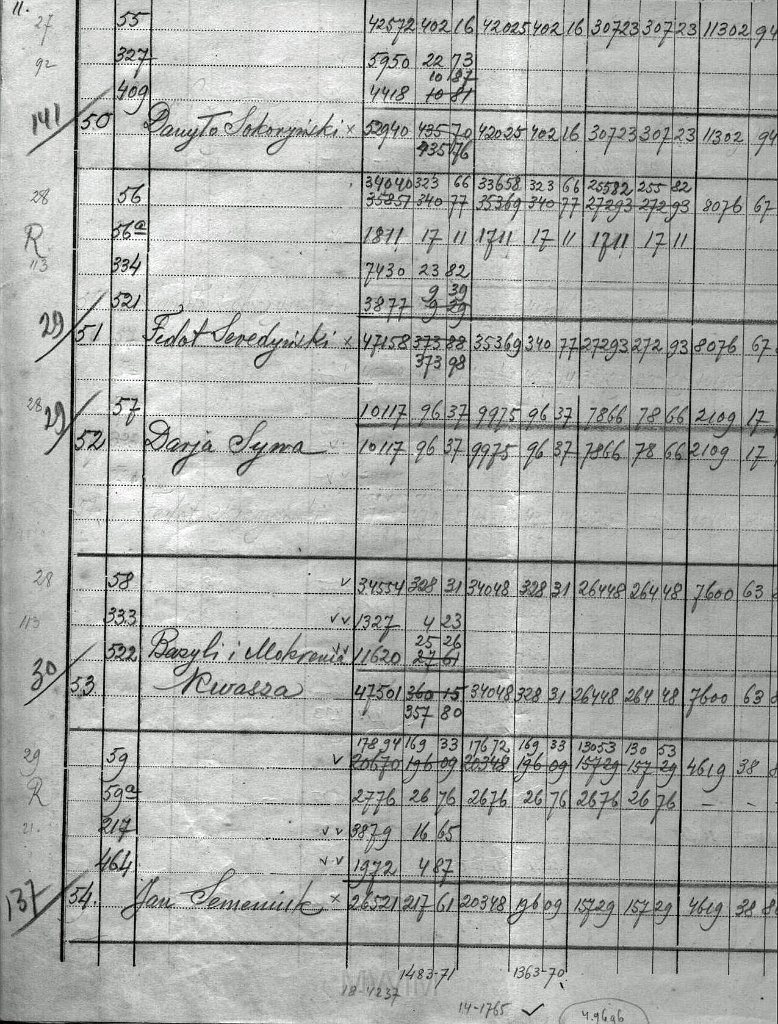 11.
27 55 42572 402 16 42025 402 16 30723 307 23 11302 94
92 327 5950 22 73
10 87
409 4418 10 81
141 50 Danyło Sokoryński x 52940 435 70 42025 402 16 30723 307 23 11302 94
435 76
34040 323 66 33658 323 66 25582 255 82
28 56 35851 340 77 35369 340 77 27293 272 93 8076 67
R 56a 1811 17 11 1711 17 11 1711 17 11
113 334 7430 23 82
9 39
521 3877 9 29
29 51 Fedot Seredyński x 47158 373 88 35369 340 77 27293 272 93 8076 67
373 98
28 29 57 10117 96 37 9975 96 37 7866 78 66 2109 17
52 Darja Sywa 10117 96 37 9975 96 37 7866 78 66 2109 17
28 58 v 34554 328 31 34048 328 31 26448 264 48 7600 63
113 333 v v 1327 4 23
25 26
532 Bazyli i Mokrenia v v 11620 27 61
30 53 Kwasza 47501 360 15 34048 328 31 26448 264 48 7600 63 8
357 80
17894 169 33 17672 169 33 13053 130 53
29 59 v 20670 196 09 20348 196 09 15729 157 29 4619 38 8
R 59a 2776 26 76 2676 26 76 2676 26 76 – –
21 217 v v 3879 16 65
464 v v 1972 4 87
137 54. Jan Semeniuk x 26521 217 61 20348 196 09 15729 157 29 4619 38 8
1483-71 1363-70
18-4237
14-1765 ✓ 4.9696